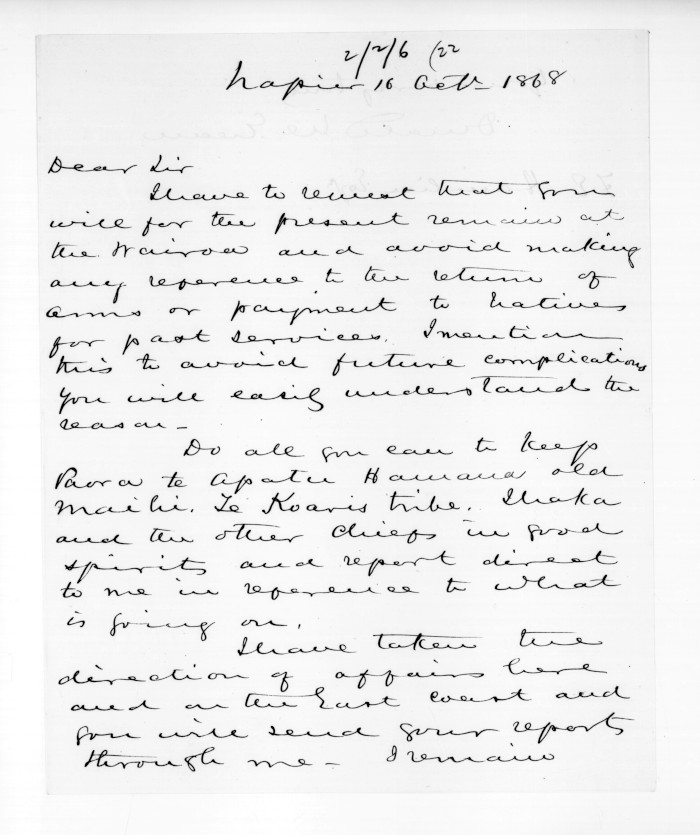 2/2/6 (22
Napier 16 Octr 1868
Dear Sir
I have to request that you
will for the present remain at
the Wairoa and avoid making
any reference to the return of
arms or payment to Natives
for past services. I mention
this to avoid future complications
You will easily understand the
reason -
Do all you can to keep
Paora te Apatu Hamana old
Maihi. Te Koaris tribe. Ihaka
and the other chiefs in good
spirits and report direct
to me in reference to what
is going on.
I have taken the
direction of affairs here
and on the East Coast and
you will send your reports
through me - I remain